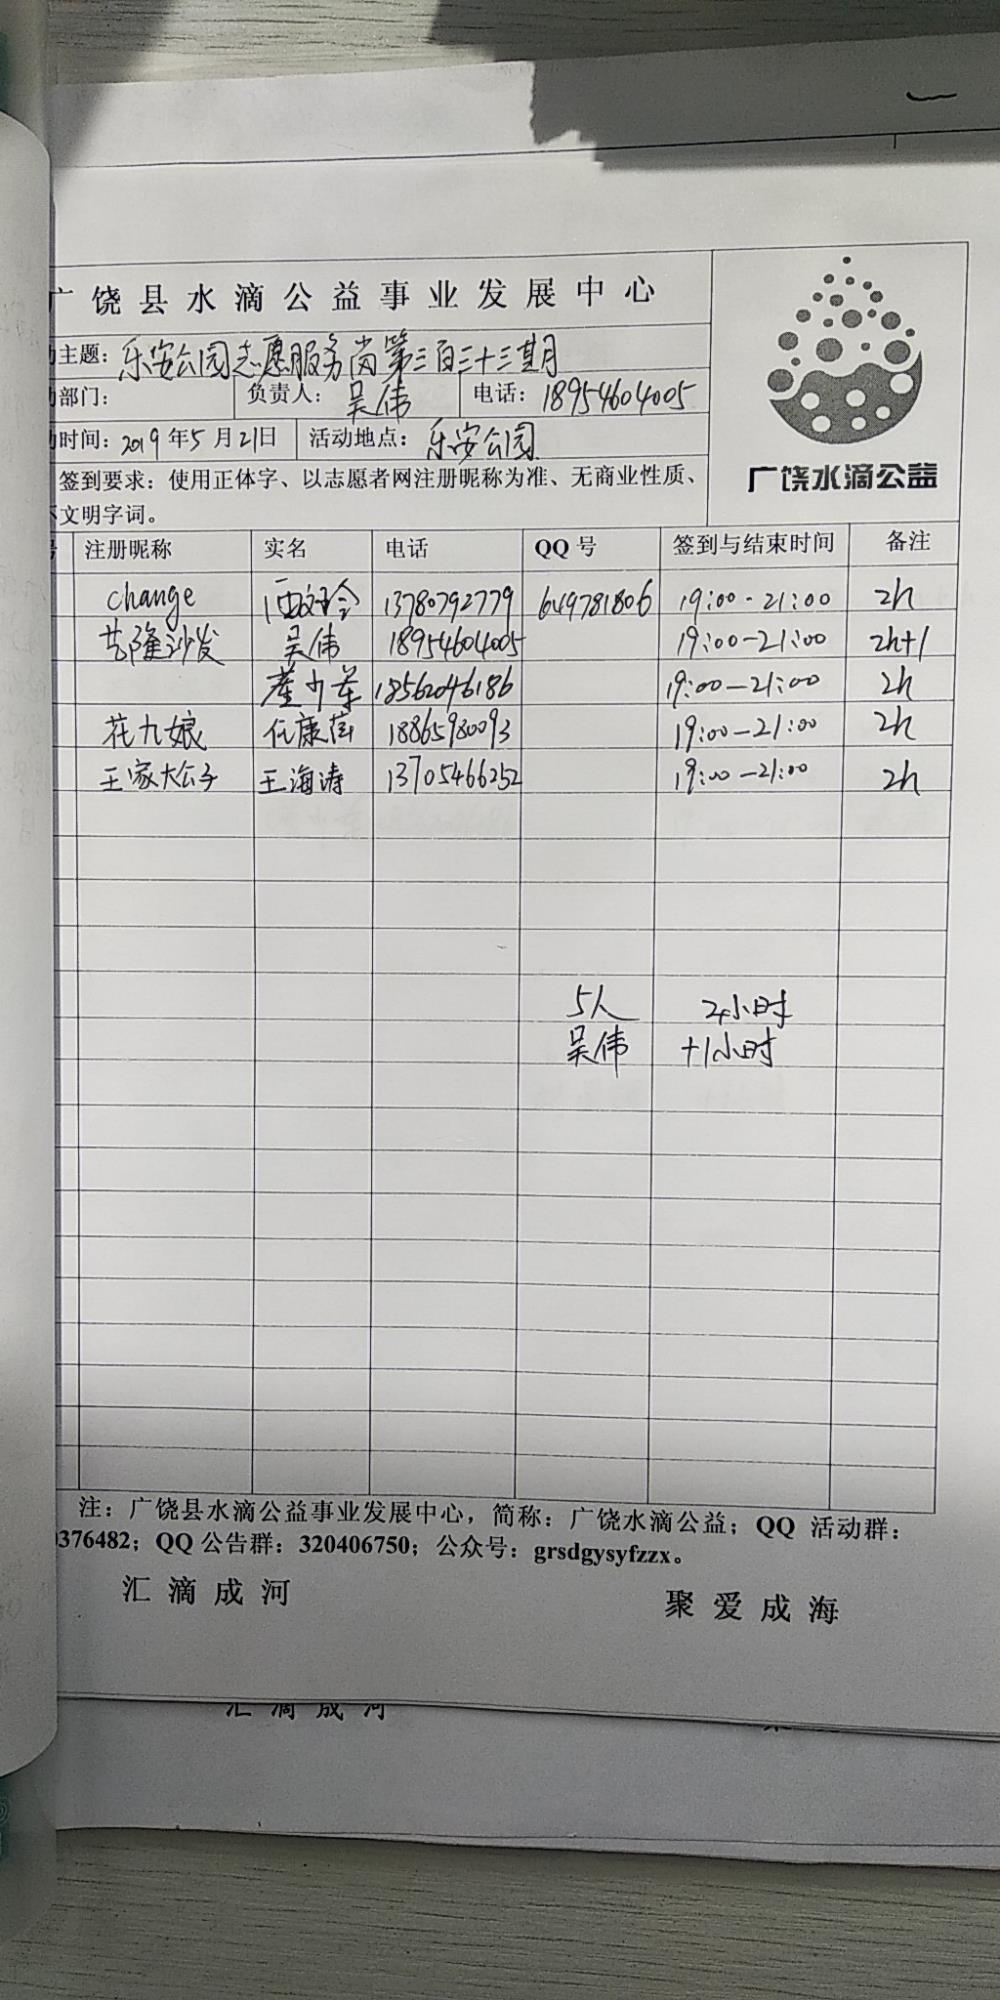 广饶县水滴公益事业发展中心
主题：乐安公园志愿服务岗第三百三十三期
部门： 负责人：吴伟 电话：18954604005
时间：2019年5月21日 活动地点：乐安公园
签到要求：使用正体字、以志愿者网注册昵称为准、无商业性质、
文明字词。
广饶水滴公益
注册昵称 实名 电话 QQ号 签到与结束时间 备注
change 13780792779 649781806 19:00-21:00 2h
艺隆沙发 吴伟 18954604005 19:00-21:00 2h+1
18562046186 19:00-21:00 2h
花九娘 任康茜 18865980093 19:00-21:00 2h
王家大公子 王海涛 13705466252 19:00-21:00 2h
5人 2小时
吴伟 +1小时
注：广饶县水滴公益事业发展中心，简称：广饶水滴公益；QQ 活动群：
376482；QQ 公告群：320406750；公众号：grsdgysyfzzx。
汇滴成河 聚爱成海
汇滴成河